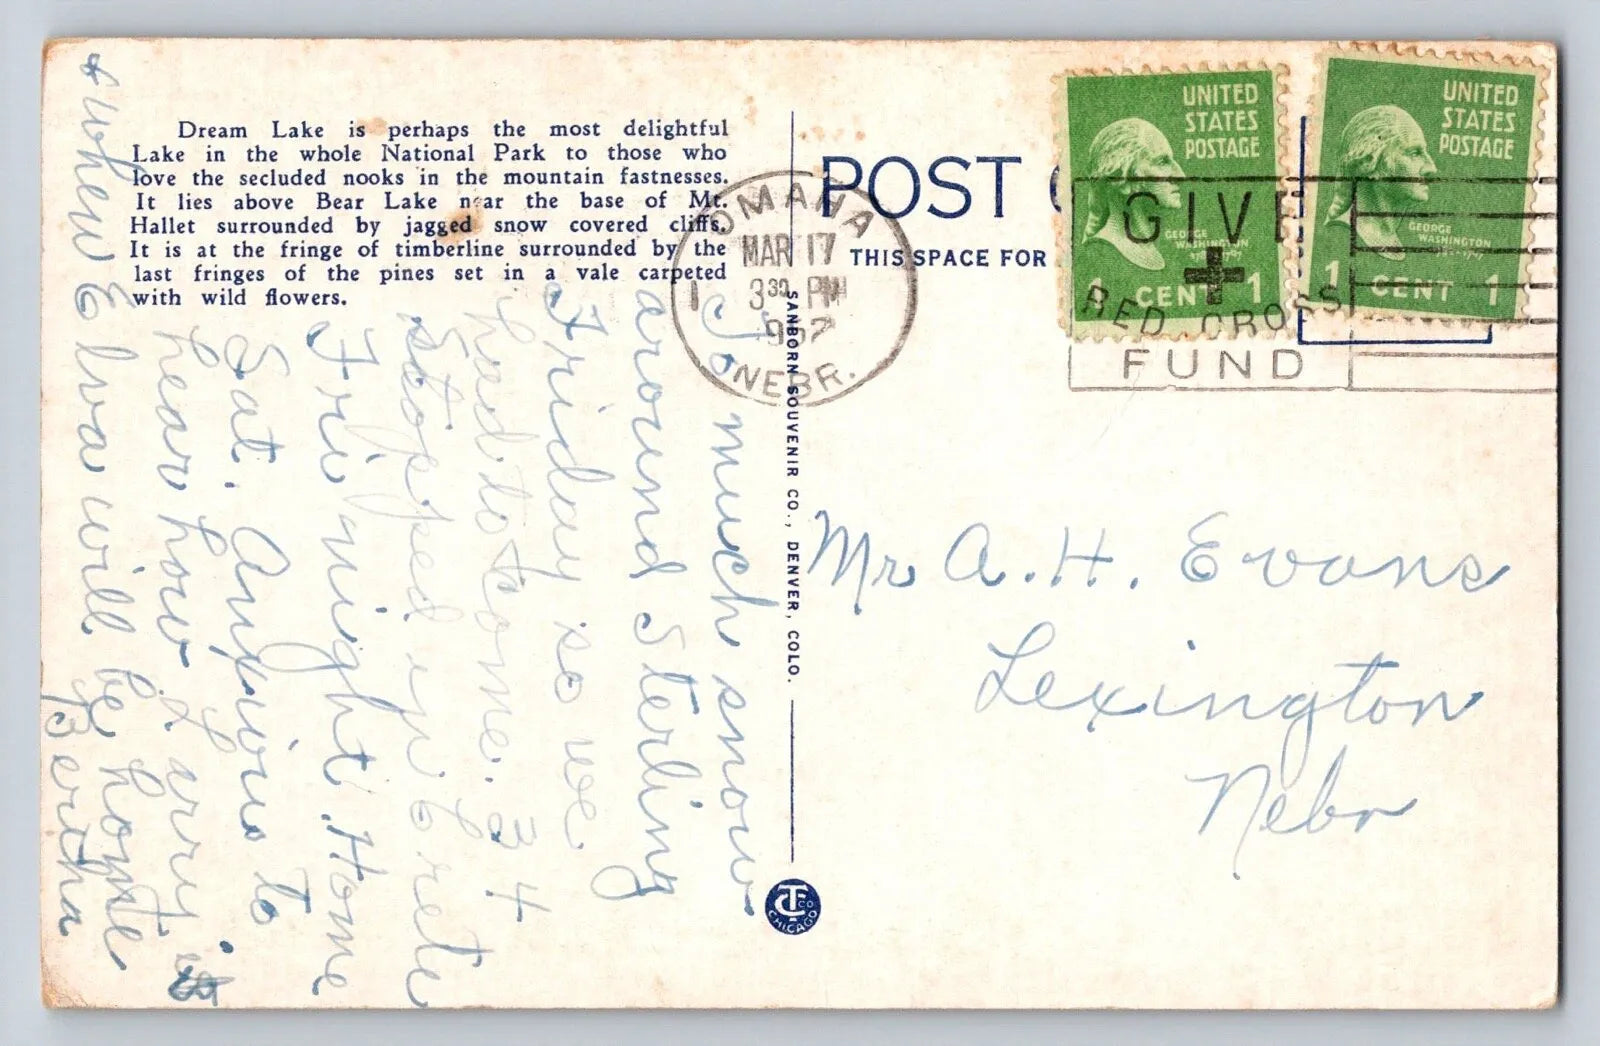 Dream Lake is perhaps the most delightful
Lake in the whole National Park to those who
love the secluded nooks in the mountain fastnesses.
It lies above Bear Lake near the base of Mt.
Hallet surrounded by jagged snow covered cliffs.
It is at the fringe of timberline surrounded by the
last fringes of the pines set in a vale carpeted
with wild flowers.
So much snow
around Sterling
Friday so we
had to come 34
Stopped in Crete
Fri night. Home
Sat. Anxious to
hear how Larry is
& when Elva will be home
Bertha
SANBORN SOUVENIR CO., DENVER, COLO.
CT CO
CHICAGO
POST
THIS SPACE FOR
OMAHA
MAR 17
3 30 PM
1957
NEBR.
GIVE
RED CROSS
FUND
UNITED
STATES
POSTAGE
GEORGE
WASHINGTON
1 CENT 1
UNITED
STATES
POSTAGE
GEORGE
WASHINGTON
1 CENT 1
Mr A. H. Evans
Lexington
Nebr